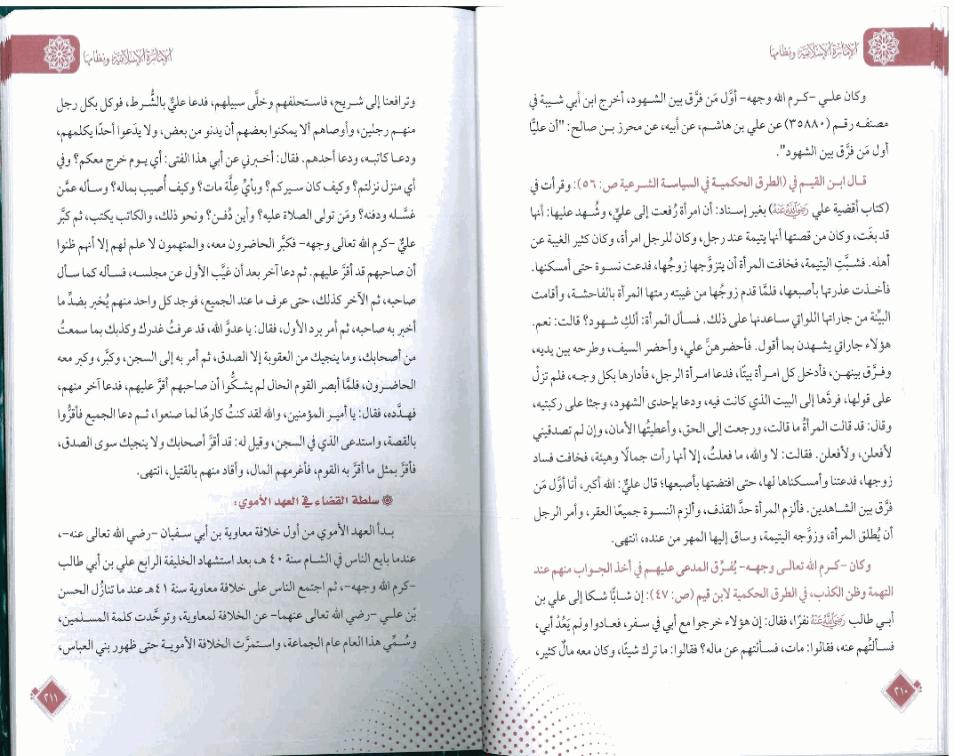 الإمارة الإسلامية ونظامها
وكان علي -كرم الله وجهه- أوَّل مَن فرَّق بين الشهود، أخرج ابن أبي شيبة في
مصنفه رقم (٣٥٨٨٠) عن علي بن هاشم، عن أبيه، عن محرز بن صالح: "أن عليًّا
أول مَن فرَّق بين الشهود".
قال ابن القيم في (الطرق الحكمية في السياسة الشرعية ص: ٥٦): وقرأت في
(كتاب أقضية علي رَضِوَاللَّهُ عَنْهُ) بغير إسناد: أن امرأة رُفعت إلى عليٍّ، وشُهد عليها: أنها
قد بغَت، وكان من قصتها أنها يتيمة عند رجل، وكان للرجل امرأة، وكان كثير الغيبة عن
أهله. فشبَّتِ اليتيمة، فخافت المرأة أن يتزوَّجها زوجُها، فدعت نسوة حتى أمسكنها.
فأخذت عذرتها بأصبعها، فلمَّا قدم زوجُها من غيبته رمتها المرأة بالفاحشة، وأقامت
البيِّنة من جاراتها اللواتي ساعدنها على ذلك. فسأل المرأة: ألكِ شهود؟ قالت: نعم.
هؤلاء جاراتي يشهدن بما أقول. فأحضرهنَّ علي، وأحضر السيف، وطرحه بين يديه،
وفرَّق بينهن، فأدخل كل امرأة بيتًا، فدعا امرأة الرجل، فأدارها بكل وجه، فلم تزلْ
على قولها، فردَّها إلى البيت الذي كانت فيه، ودعا بإحدى الشهود، وجثا على ركبتيه،
وقال: قد قالت المرأةُ ما قالت، ورجعت إلى الحق، وأعطيتُها الأمان، وإن لم تصدقيني
لأفعلن، ولأفعلن. فقالت: لا والله، ما فعلتْ، إلا أنها رأت جمالًا وهيئة، فخافت فساد
زوجها، فدعتنا وأمسكناها لها، حتى افتضتها بأصبعها؛ قال عليٌّ: الله أكبر، أنا أوَّل مَن
فرَّق بين الشاهدين. فألزم المرأة حدَّ القذف، وألزم النسوة جميعًا العقر، وأمر الرجل
أن يُطلق المرأة، وزوَّجه اليتيمة، وساق إليها المهر من عنده، انتهى.
وكان -كرم الله تعالى وجهه- يُفرِّق المدعى عليهم في أخذ الجواب منهم عند
التهمة وظن الكذب، في الطرق الحكمية لابن قيم (ص: ٤٧): إن شابًّا شكا إلى علي بن
أبي طالب رَضِوَاللَّهُ عَنْهُ نفرًا، فقال: إن هؤلاء خرجوا مع أبي في سفر، فعادوا ولم يَعُدْ أبي،
فسألتُهم عنه، فقالوا: مات، فسألتهم عن ماله؟ فقالوا: ما ترك شيئًا، وكان معه مالٌ كثير،
٢١٠
الإمارة الإسلامية ونظامها
وترافعنا إلى شريح، فاستحلفهم وخلَّى سبيلهم، فدعا عليٌّ بالشُّرط، فوكل بكل رجل
منهم رجلين، وأوصاهم ألا يمكنوا بعضهم أن يدنو من بعض، ولا يدَعوا أحدًا يكلمهم،
ودعا كاتبه، ودعا أحدهم. فقال: أخبرني عن أبي هذا الفتى: أي يوم خرج معكم؟ وفي
أي منزل نزلتم؟ وكيف كان سيركم؟ وبأيِّ علَّة مات؟ وكيف أُصيب بماله؟ وسأله عمَّن
غسَّله ودفنه؟ ومَن تولى الصلاة عليه؟ وأين دُفن؟ ونحو ذلك، والكاتب يكتب، ثم كبَّر
عليٌّ -كرم الله تعالى وجهه- فكبَّر الحاضرون معه، والمتهمون لا علم لهم إلا أنهم ظنوا
أن صاحبهم قد أقرَّ عليهم. ثم دعا آخر بعد أن غيَّب الأول عن مجلسه، فسأله كما سأل
صاحبه، ثم الآخر كذلك، حتى عرف ما عند الجميع، فوجد كل واحد منهم يُخبر بضدِّ ما
أخبر به صاحبه، ثم أمر برد الأول، فقال: يا عدوَّ الله، قد عرفتُ غدرك وكذبك بما سمعتُ
من أصحابك، وما ينجيك من العقوبة إلا الصدق، ثم أمر به إلى السجن، وكبَّر، وكبر معه
الحاضرون، فلمَّا أبصر القوم الحال لم يشكُّوا أن صاحبهم أقرَّ عليهم، فدعا آخر منهم،
فهدَّده، فقال: يا أمير المؤمنين، والله لقد كنتُ كارهًا لما صنعوا، ثم دعا الجميع فأقرُّوا
بالقصة، واستدعى الذي في السجن، وقيل له: قد أقرَّ أصحابك ولا ينجيك سوى الصدق،
فأقرَّ بمثل ما أقرَّ به القوم، فأغرمهم المال، وأقاد منهم بالقتيل، انتهى.
سلطة القضاء في العهد الأموي:
بدأ العهد الأموي من أول خلافة معاوية بن أبي سفيان -رضي الله تعالى عنه-،
عندما بايع الناس في الشام سنة ٤٠ هـ، بعد استشهاد الخليفة الرابع علي بن أبي طالب
-كرم الله وجهه-، ثم اجتمع الناس على خلافة معاوية سنة ٤١هـ عند ما تنازُل الحسن
بْن علي -رضي الله تعالى عنهما- عن الخلافة لمعاوية، وتوحَّدت كلمة المسلمين،
وسُمِّي هذا العام عام الجماعة، واستمرَّت الخلافة الأموية حتى ظهور بني العباس،
٢١١